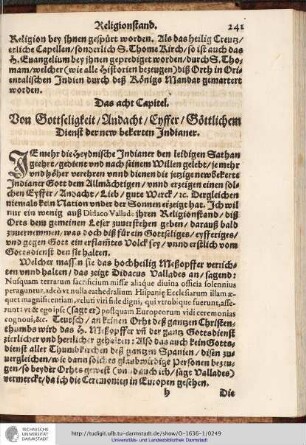 Religionstand. 241
Religion bey jhnen gespürt worden. Als das heilig Creutz/
erliche Capellen/sonderlich S. Thome Kirch/so ist auch das
H. Euangelium bey jhnen geprediget worden/durch S. Tho-
mam/welcher (wie alle Historien bezeugen) diß Orth in Ori-
entalischen Indien durch deß Königs Mandat gemartert
worden.
Das acht Capitel.
Von Gottseligkeit/Andacht/Eyffer/Göttlichem
Dienst der new bekerten Indianer.
JE mehr die Heydnische Indianer den leidigen Sathan
geehrt/gedient vnd nach seinem Willen gelebt/je mehr
vnd höher verehren vnnd dienen die jetzige new bekerte
Indianer Gott dem Allmächtigen/vnnd erzeigen einen sol-
chen Eyffer/Andacht/Lieb/gute Werck/ec. Dergleichen
niemals kein Nation vnder der Sonnen erzeigt hat. Ich wil
nur ein wenig auß Didaco Vallad: jhren Religionstand/diß
Orts dem gemeinen Leser zuuerstehen geben/darauß balt
zuuernemen, was doch diß für ein Gottseliges/eyfferiges/
vnd gegen Gott ein erflamtes Volck sey/vnnd erstlich vom
Gottsdienst den sie halten.
Welcher mass in sie das hochheilig Meßopffer verrich-
ten vnnd halten/das zeigt Didacus Vallades an/sagend:
Nusquam terrarum sacrificium missæ aliáque diuina officia solennius
peraguntur, adeò vt nulla cathedralium Hispaniæ Ecclesiarum illam æ-
quet magnificentiam, veluti viri fide digni, qui vtrobique fuerunt, asse-
runt: vt & ego ipse (sagt er) postquam Europæorum vidi ceremonias
cognoui, &c. Teutsch/an keinen Orth deß gantzen Christen-
thumbs wird das H. Meßopffer vñ der gantz Gottsdienst
zierlicher vnd herrlicher gehalten: Also das auch kein Gotts-
dienst aller Thumbkirchen deß gantzen Spanien/disen zu-
vergleichen/wie dann solches glaubwirdige Personen bezeu-
gen/so beyder Orthe gewest (vn.dauch ich/sagt Vallades)
vermerckt/da ich die Ceremonien in Europen gesehen.
h Die
TECHNISCHE
UNIVERSITÄT
DARMSTADT
http://tudigit.ulb.tu-darmstadt.de/show/O-1636-1/0249
Universitäts- und Landesbibliothek Darmstadt